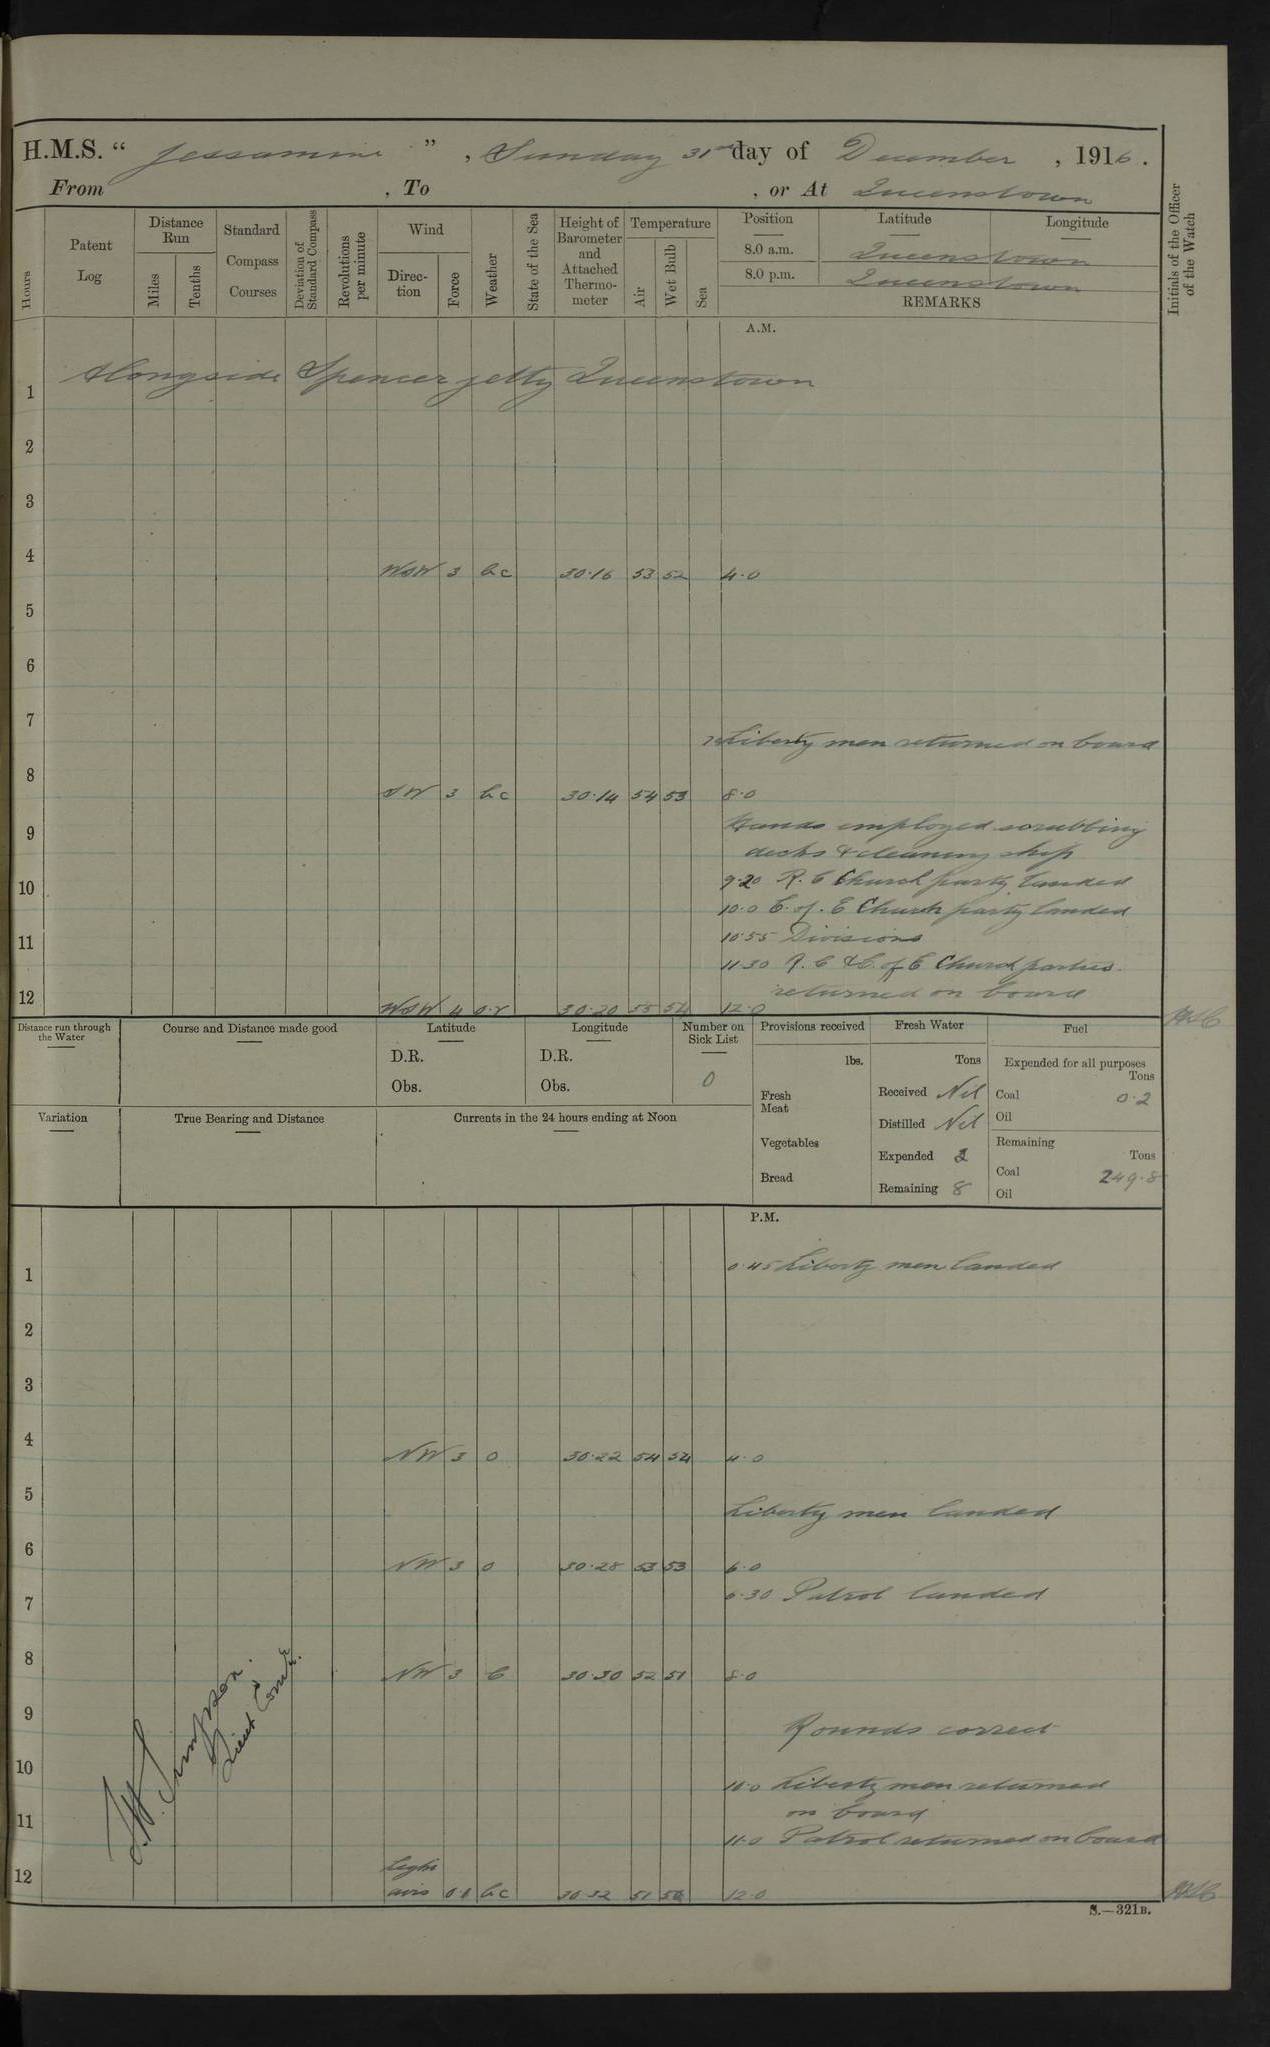 H.M.S. “ Jessamine ” , Sunday 31st day of December , 1916 .
From , To , or At Queenstown
Hours
Patent Log
Distance Run
Miles
Tenths
Standard Compass Courses
Deviation of Standard Compass
Revolutions per minute
Wind
Direc-tion
Force
Weather
State of the Sea
Height of Barometer and Attached Thermo-meter
Temperature
Air
Wet Bulb
Sea
Position Latitude Longitude
8.0 a.m. Queenstown
8.0 p.m. Queenstown
REMARKS
Initials of the Officer of the Watch
A.M.
1 Alongside Spencer jetty Queenstown
2
3
4 WSW 3 bc 30.16 53 52 4.0
5
6
7
Liberty men returned on board
8 SW 3 bc 30.14 54 53 8.0
9 Hands employed scrubbing
decks & cleaning ship
10 9.20 R.C Church party landed
10.0 C. of. E Church party landed
11 10.55 Divisions
11.30 R.C & C of E Church parties
returned on board
12 WSW 4 o.r 30.20 55 54 12.0
Distance run through the Water
Course and Distance made good
Latitude
D.R.
Obs.
Longitude
D.R.
Obs.
Number on Sick List
0
Provisions received
lbs.
Fresh Meat
Vegetables
Bread
Fresh Water
Tons
Received Nil
Distilled Nil
Expended 2
Remaining 8
Fuel
Expended for all purposes
Tons
Coal 0.2
Oil
Remaining
Tons
Coal 249.8
Oil
Variation
True Bearing and Distance
Currents in the 24 hours ending at Noon
P.M.
1 0.45 Liberty men landed
2
3
4 NW 3 o 30.22 54 54 4.0
5
Liberty men landed
6 NW 3 o 30.28 53 53 6.0
7 6.30 Patrol landed
8 NW 3 c 30.30 52 51 8.0
9 Rounds correct
10
Liberty men returned
11 on board
11.0 Patrol returned on board
12 Light
airs 0.1 bc 30.32 51 50 12.0
Simpson.
Lieut Comdr.
S.—321B.